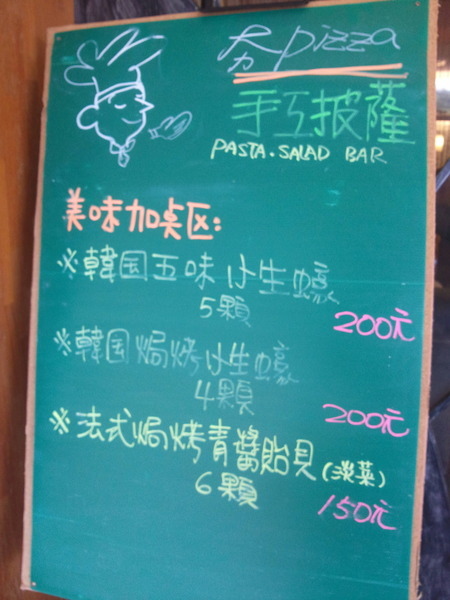 夯pizza
手工披薩
PASTA.SALAD BAR
美味加桌区:
※韓国五味小生蠔
5顆
200元
※韓国焗烤小生蠔
4顆
200元
※法式焗烤青醬貽貝(淡菜)
6顆
150元